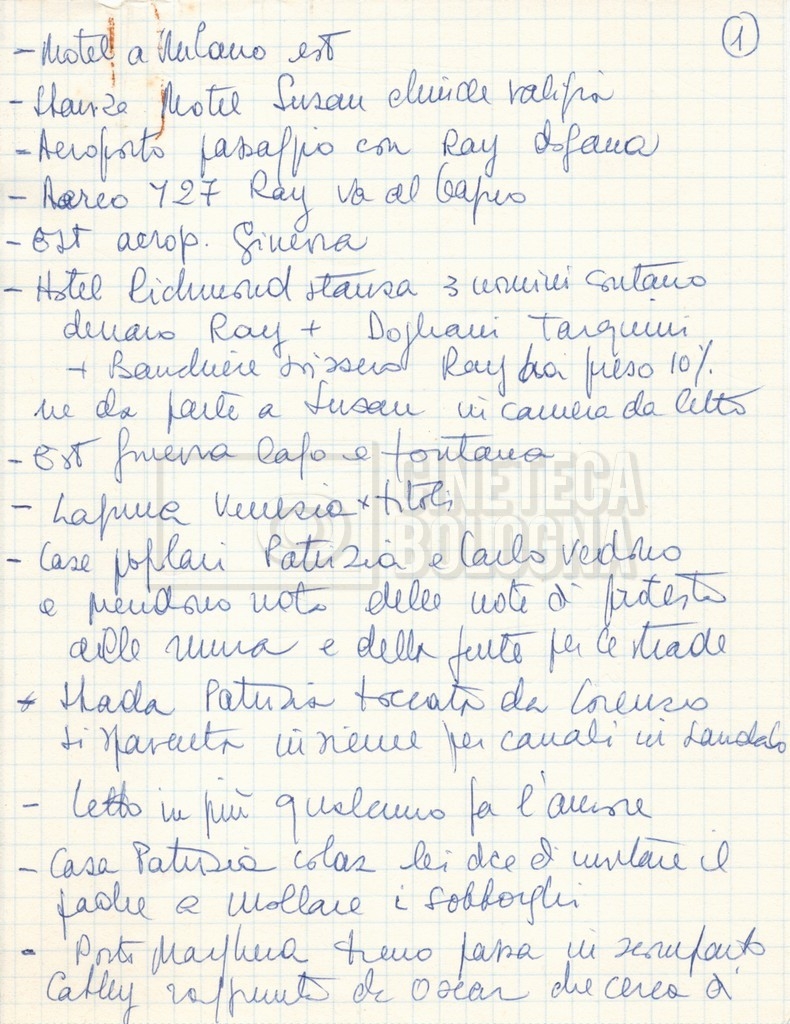 1
- Motel a Milano est
- Stanza Motel Susan chiude valigia
- Aeroporto passaggio con Ray dogana
- Aereo 727 Ray va al
- Est aerop. Ginevra
- Hotel Richmond stanza 3 uomini contano
denaro Ray + Dogliani Tarquini
+ Banchiere svizzero Ray ha preso 10%
ne da parte a Susan in camera da letto
- Est Ginevra Lago e fontana
- Laguna Venezia x titoli
CINETECA
BOLOGNA
- Case poplari Patrizia e Carlo vedono
e prendono nota delle note di protesta
delle mura e della gente per le strade
Strada Patrizia toccata da Lorenzo
si spaventa insieme per canali in sandalo
- Letto in più qualcuno fa l'amore
- Casa Patrizia lei dice di invitare il
padre a mollare i sobborghi
- Porto Marghera treno passa in scomparto
Cathy raggiunta da Oscar che cerca di